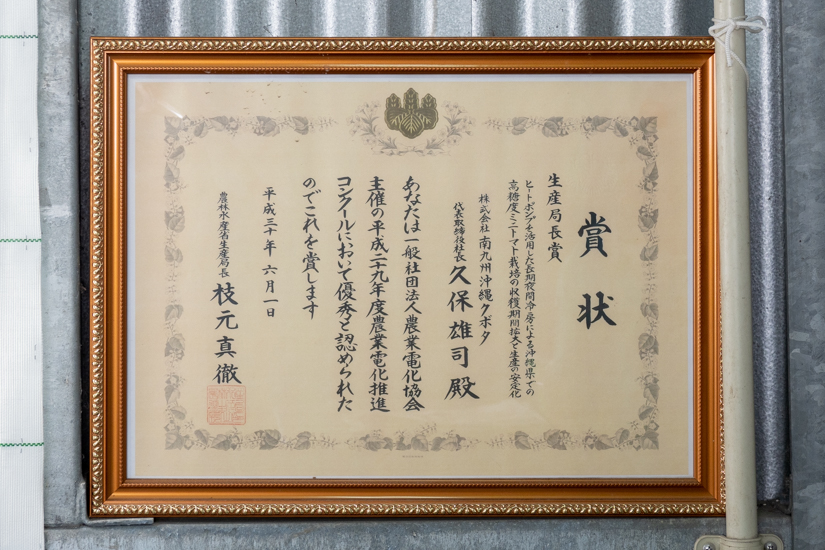 賞状
生産局長賞
ヒートポンプを活用した長期夜間冷房による沖縄県での
高糖度ミニトマト栽培の収穫期間拡大と生産の安定化
株式会社 南九州沖縄クボタ
代表取締役社長 久保雄司 殿
あなたは一般社団法人農業電化協会
主催の平成二十九年度農業電化推進
コンクールにおいて優秀と認められた
のでこれを賞します
平成三十年 六月一日
農林水産省生産局長 枝元真徹